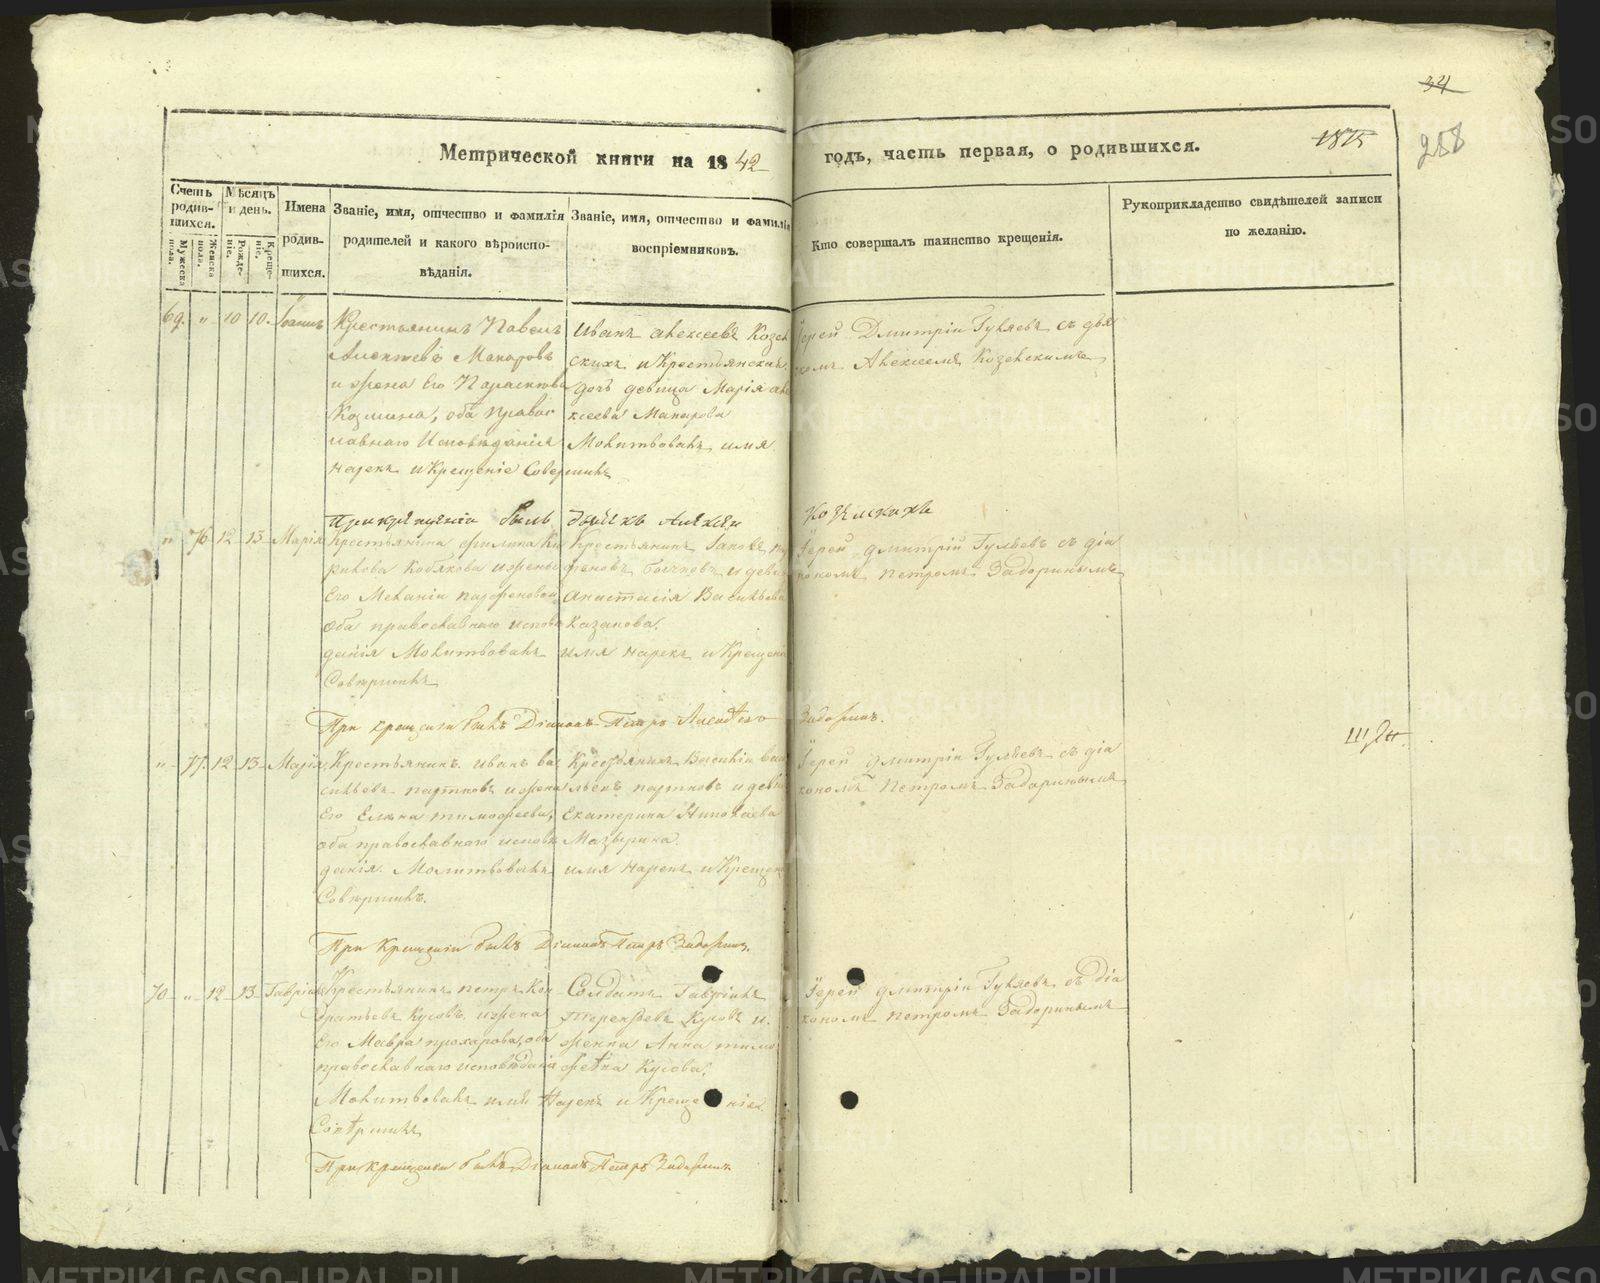 34
258
1815
Метрической книги на 1842
годъ, часть первая, о родившихся.
Счетъ родив-шихся.
Мужеска пола.
Женска пола.
Мѣсяцъ и день.
Рожде-ніе.
Креще-ніе.
Имена
родив-
шихся.
Званіе, имя, отчество и фамилія
родителей и какого вѣроиспо-
вѣданія.
Званіе, имя, отчество и фамилія
воспріемниковъ.
Кто совершалъ таинство крещенія.
Рукоприкладство свидѣтелей записи
по желанію.
69. " 10 10 Іоаннъ
Крестьянинъ Павелъ
Макаровъ
и жена Его Параскева
Козмина, оба Правос
лавнаго Исповѣданія
Иванъ Алексеевъ Козел
скихъ и Крестьянская
дочь девица Марія Але
ксеева Макарова
Молитвовалъ имя
нарекъ и Крещеніе Совершилъ
Іерей Дмитрій Гуляевъ съ дья
комъ Алексеемъ Козелскимъ
былъ дьячекъ Алексей Козелскихъ
" 76 12 13 Марія
Крестьянина Филипа Ки
рикова Кобякова и жены
Его Меланіи Парфеновой
оба православнаго исповѣ
данія Молитвовалъ имя нарекъ и Крещен
Совершилъ
Крестьянинъ Іаковъ
и девица
Анастасія Васильева
Казакова.
Іерей Дмитрій Гуляевъ съ діа
кономъ Петромъ Задоринымъ
При крещении былъ Діаконъ Петръ Задоринъ.
" 77. 12 13 Марія
Крестьянинъ Иванъ Ва
сильевъ Партновъ и жена
Его Елена Тимофеева,
оба православнаго исповѣ
данія. Молитвовалъ имя нарекъ и Крещен
Совершилъ.
Крестьянинъ Василій Васи
льевъ Партновъ и девица
Екатерина Николаева
Мазырина.
Іерей Дмитрій Гуляевъ съ діа
кономъ Петромъ Задоринымъ
При Крещении былъ Діаконъ Петръ Задоринъ.
70 " 12 13 Гавріилъ
Крестьянинъ Петръ Кон
дратьевъ Кусовъ и жена
Его Мавра Прохорова, оба
православнаго исповѣданія
Молитвовалъ имя Нарекъ и Крещеніе
Совершилъ
Солдатъ Гавріилъ
Терентьевъ Кусовъ и
женка Анна Тимо
феева Кусова.
Іерей Дмитрій Гуляевъ съ діа
кономъ Петромъ Задоринымъ
При крещении былъ Діаконъ Петръ Задоринъ.
METRIKI.GASO-URAL.RU